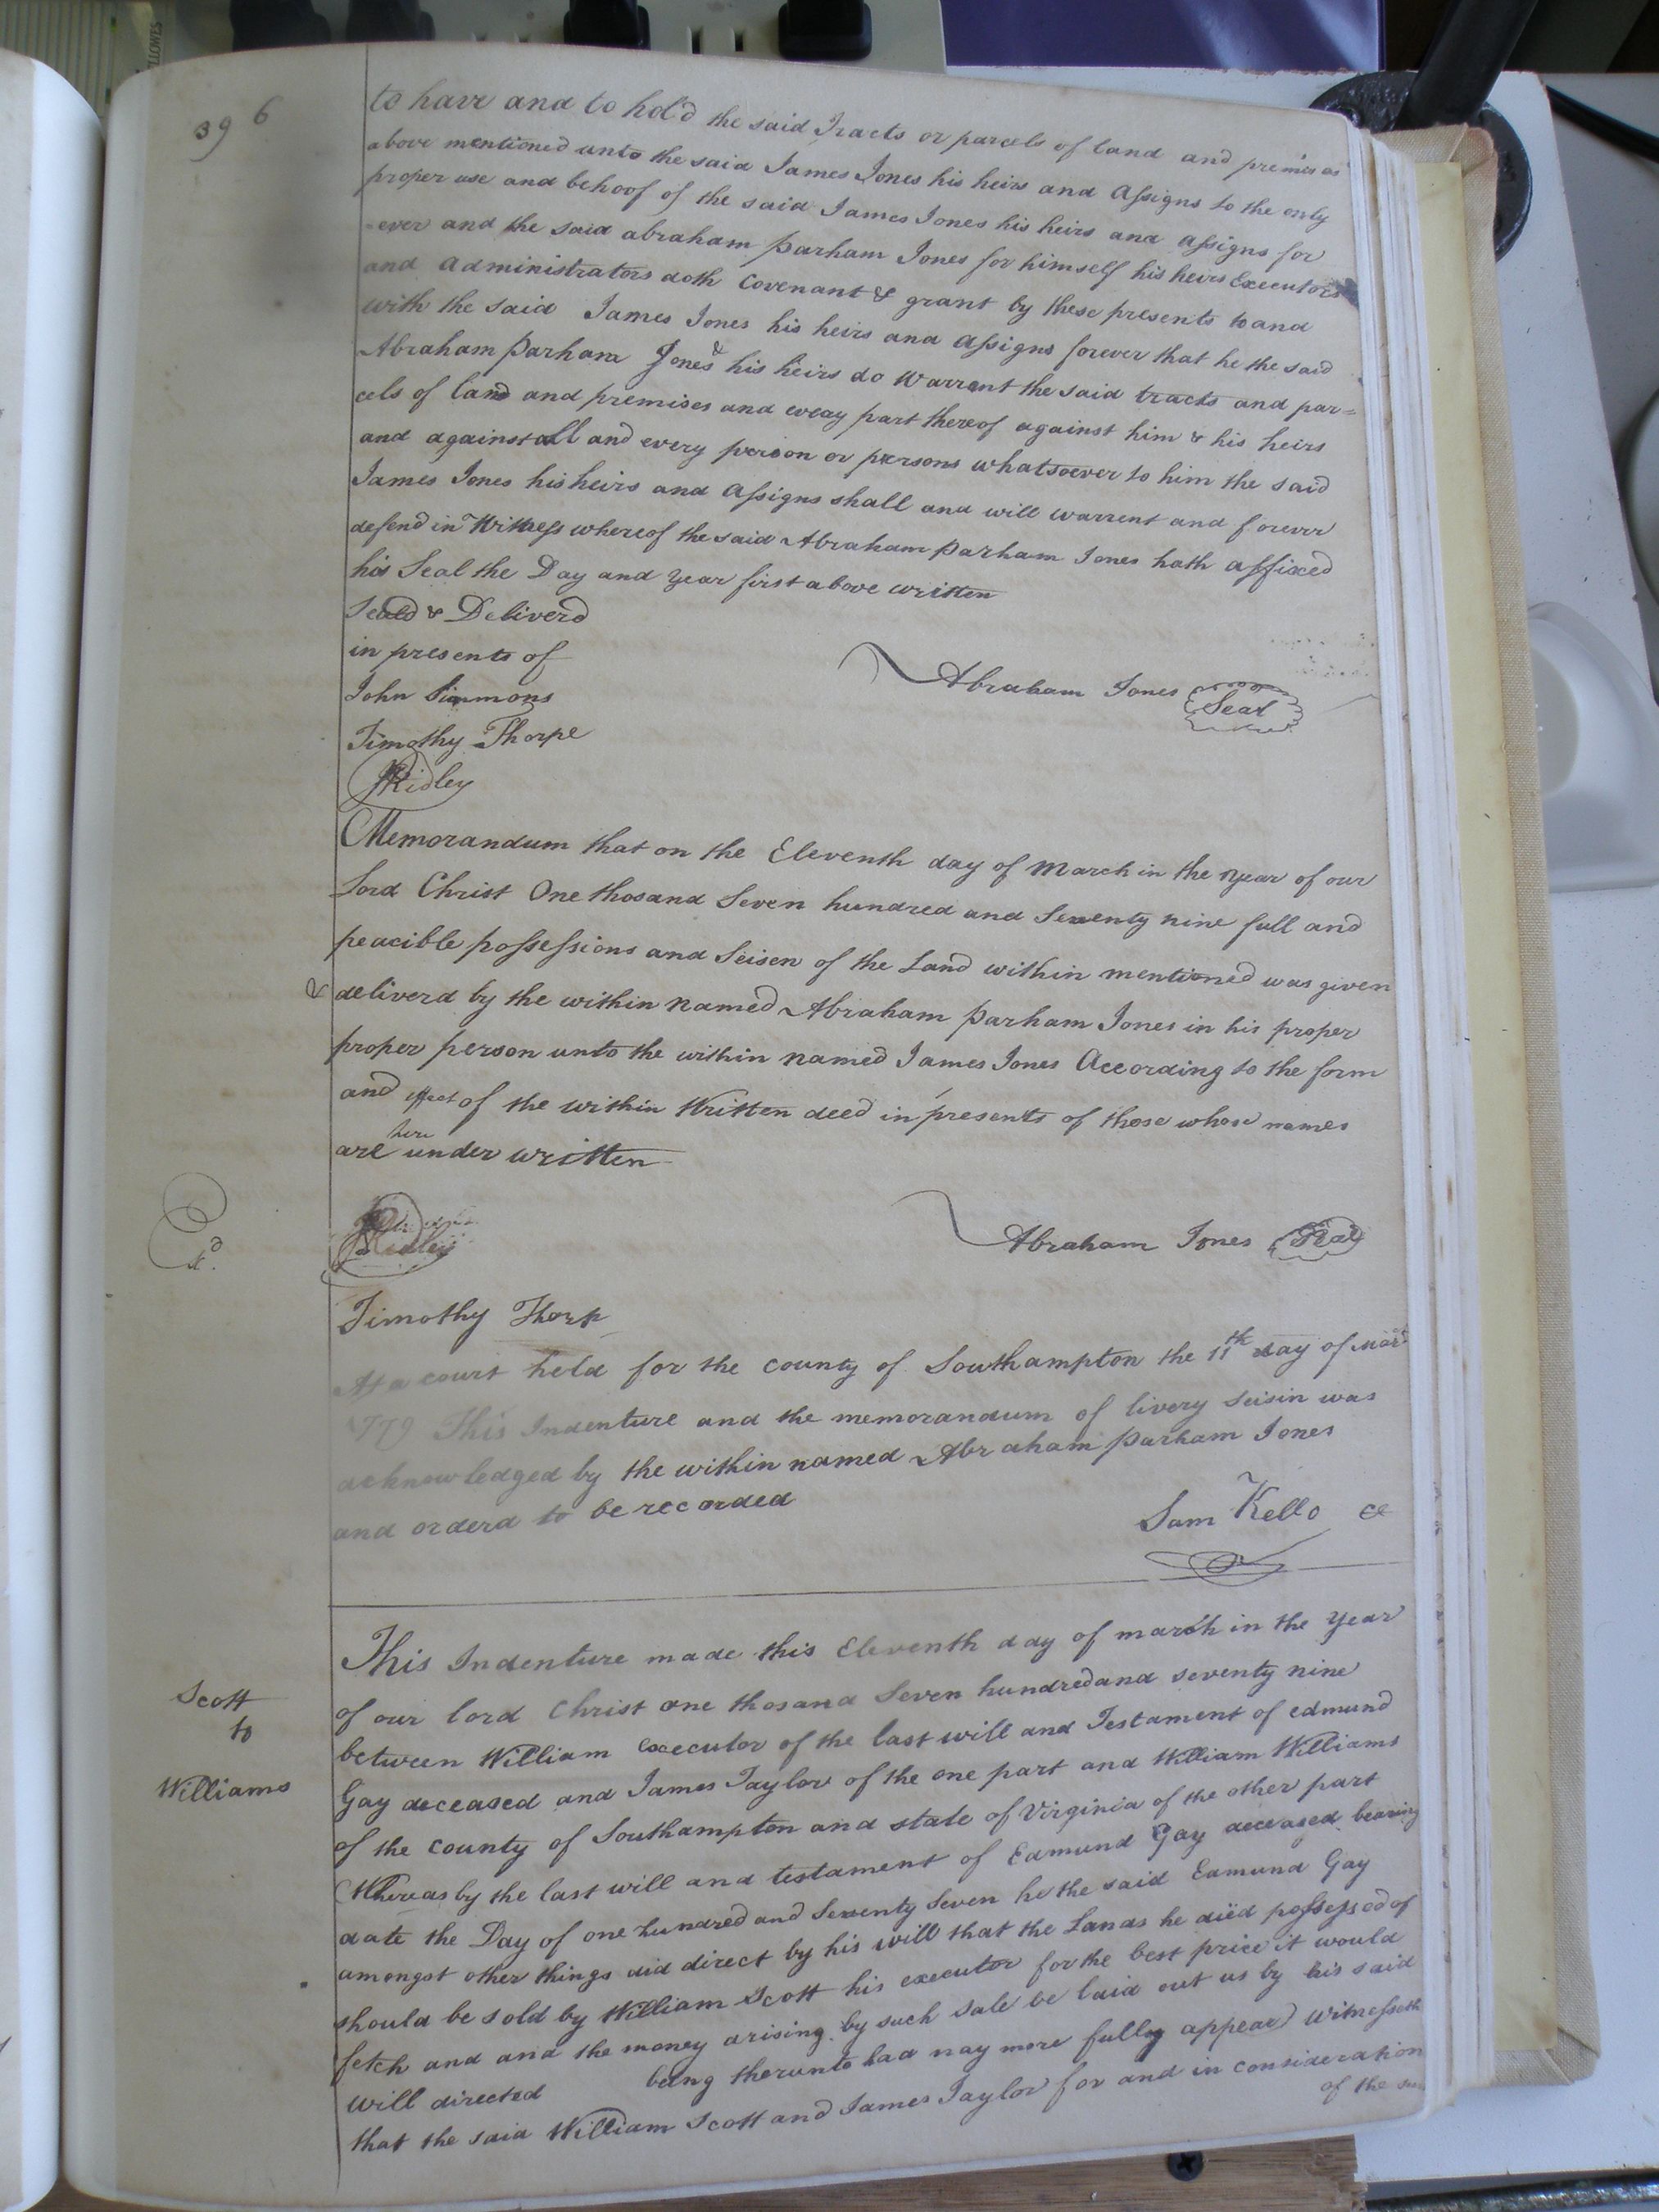 396
to have and to hold the said Tracts or parcels of land and premises
above mentioned unto the said James Jones his heirs and Assigns to the only
proper use and behoof of the said James Jones his heirs and assigns for
-ever and the said abraham Parham Jones for himself his heirs Executors
and Administrators doth Covenant & grant by these presents to and
with the said James Jones his heirs and Assigns forever that he the said
Abraham Parham Jones & his heirs do Warrent the said tracts and par=
cels of land and premises and eveay part thereof against him & his heirs
and against all and every person or persons whatsoever to him the said
James Jones his heirs and Assigns shall and will warrent and forever
defend in Witness whereof the said Abraham Parham Jones hath affixed
his Seal the Day and year first above written
Seald & Deliverd
in presents of
John Simmons
Abraham Jones Seal
Timothy Thorpe
JRidley
Memorandum that on the Eleventh day of March in the year of our
Lord Christ One thosand Seven hundred and Seventy nine full and
peacible possessions and Seisen of the Land within mentioned was given
& deliverd by the within Named Abraham Parham Jones in his proper
proper person unto the within named James Jones According to the form
and effect of the within Written deed in presents of those whose names
are here under written
Ridley
Abraham Jones Seal
Timothy Thorp
At a court held for the county of Southampton the 11th day of March
1779 This Indenture and the memorandum of livery Seisin was
acknowledged by the within named Abraham Parham Jones
and orderd to be recorded
Sam Kello
This Indenture made this Eleventh day of march in the year
Scott
to
Williams
of our lord Christ one thosand Seven hundred and seventy nine
between William Executor of the last will and Testament of edmund
Gay deceased and James Taylor of the one part and William Williams
of the county of Southampton and state of Virginia of the other part
(Whereas by the last will and testament of Edmund Gay deceased bearing
date the Day of one hundred and Seventy Seven he the said Edmund Gay
amongst other things did direct by his will that the Lands he died possessed of
should be sold by William Scott his executor for the best price it would
fetch and and the money arising by such Sale be laid out us by his said
will directed being therunto had nay more fully appear) Witnesseth
that the said William Scott and James Taylor for and in consideration
of the sum